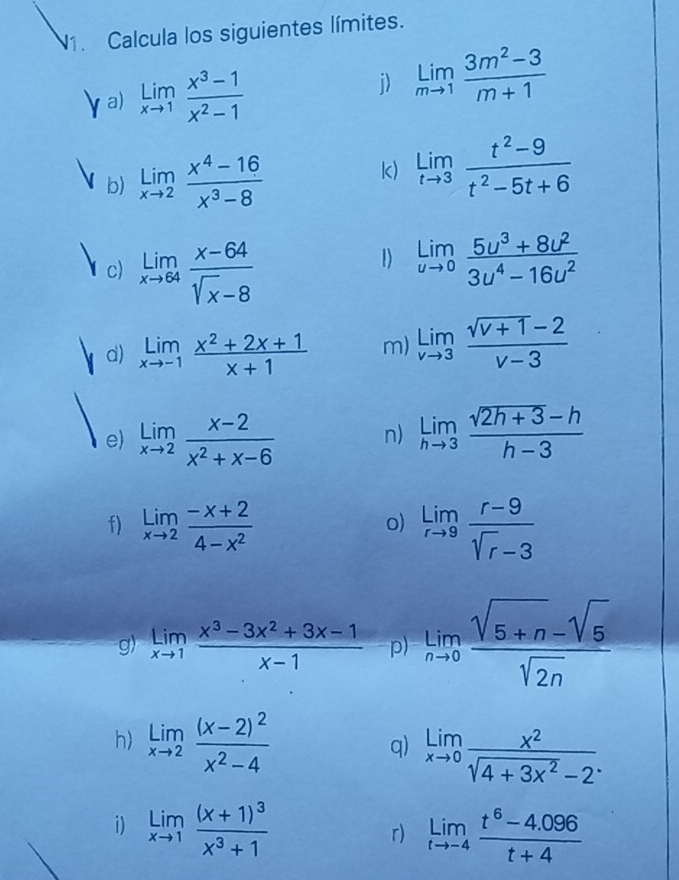 1. Calcula los siguientes límites.
a) Lim x→1 (x³ − 1)/(x² − 1)
b) Lim x→2 (x⁴ − 16)/(x³ − 8)
c) Lim x→64 (x − 64)/(√x − 8)
d) Lim x→−1 (x² + 2x + 1)/(x + 1)
e) Lim x→2 (x − 2)/(x² + x − 6)
f) Lim x→2 (−x + 2)/(4 − x²)
g) Lim x→1 (x³ − 3x² + 3x − 1)/(x − 1)
h) Lim x→2 (x − 2)²/(x² − 4)
i) Lim x→1 (x + 1)³/(x³ + 1)
j) Lim m→1 (3m² − 3)/(m + 1)
k) Lim t→3 (t² − 9)/(t² − 5t + 6)
l) Lim u→0 (5u³ + 8u²)/(3u⁴ − 16u²)
m) Lim v→3 (√(v + 1) − 2)/(v − 3)
n) Lim h→3 (√(2h + 3) − h)/(h − 3)
o) Lim r→9 (r − 9)/(√r − 3)
p) Lim n→0 (√(5 + n) − √5)/√(2n)
q) Lim x→0 x²/(√(4 + 3x²) − 2)
r) Lim t→−4 (t⁶ − 4.096)/(t + 4)